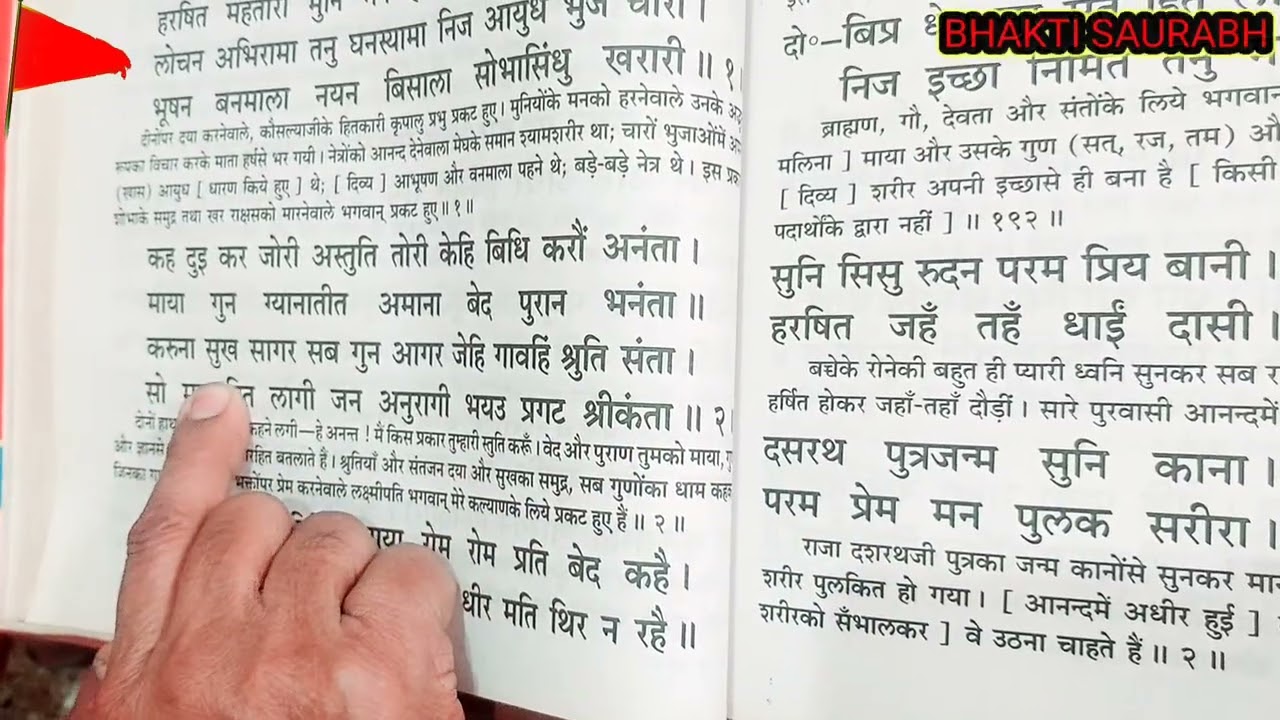 हरषित महतारी मुनि
लोचन अभिरामा तनु घनस्यामा निज आयुध भुज चारी ।
भूषन बनमाला नयन बिसाला सोभासिंधु खरारी ॥ १
दीनोंपर दया करनेवाले, कौसल्याजीके हितकारी कृपालु प्रभु प्रकट हुए। मुनियोंके मनको हरनेवाले उनके
रूपका विचार करके माता हर्षसे भर गयी। नेत्रोंको आनन्द देनेवाला मेघके समान श्यामशरीर था; चारों भुजाओंमें
(खास) आयुध [ धारण किये हुए ] थे; [ दिव्य ] आभूषण और वनमाला पहने थे; बड़े-बड़े नेत्र थे। इस
शोभाके समुद्र तथा खर राक्षसको मारनेवाले भगवान् प्रकट हुए॥ १॥
कह दुइ कर जोरी अस्तुति तोरी केहि बिधि करौं अनंता ।
माया गुन ग्यानातीत अमाना बेद पुरान भनंता ॥
करुना सुख सागर सब गुन आगर जेहि गावहिं श्रुति संता ।
सो लागी जन अनुरागी भयउ प्रगट श्रीकंता ॥ २
दोनों कहने लगी—हे अनन्त ! मैं किस प्रकार तुम्हारी स्तुति करूँ। वेद और पुराण तुमको माया,
और ज्ञानसे रहित बतलाते हैं। श्रुतियाँ और संतजन दया और सुखका समुद्र, सब गुणोंका धाम
जिनका भक्तोंपर प्रेम करनेवाले लक्ष्मीपति भगवान् मेरे कल्याणके लिये प्रकट हुए हैं॥ २ ॥
रोम रोम प्रति बेद कहै ।
धीर मति थिर न रहै ॥
BHAKTI SAURABH
दो०—बिप्र
निज इच्छा निर्मित तनु
ब्राह्मण, गौ, देवता और संतोंके लिये
मलिना ] माया और उसके गुण (सत्, रज, तम)
[ दिव्य ] शरीर अपनी इच्छासे ही बना है [ किसी
पदार्थोंके द्वारा नहीं ] ॥ १९२ ॥
सुनि सिसु रुदन परम प्रिय बानी ।
हरषित जहँ तहँ धाईं दासी ।
बच्चेके रोनेकी बहुत ही प्यारी ध्वनि सुनकर सब
हर्षित होकर जहाँ-तहाँ दौड़ीं। सारे पुरवासी आनन्दमें
दसरथ पुत्रजन्म सुनि काना ।
परम प्रेम मन पुलक सरीरा ।
राजा दशरथजी पुत्रका जन्म कानोंसे सुनकर
शरीर पुलकित हो गया। [ आनन्दमें अधीर हुई ]
शरीरको सँभालकर ] वे उठना चाहते हैं॥ २ ॥